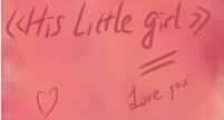 «His Little girl»
Love you